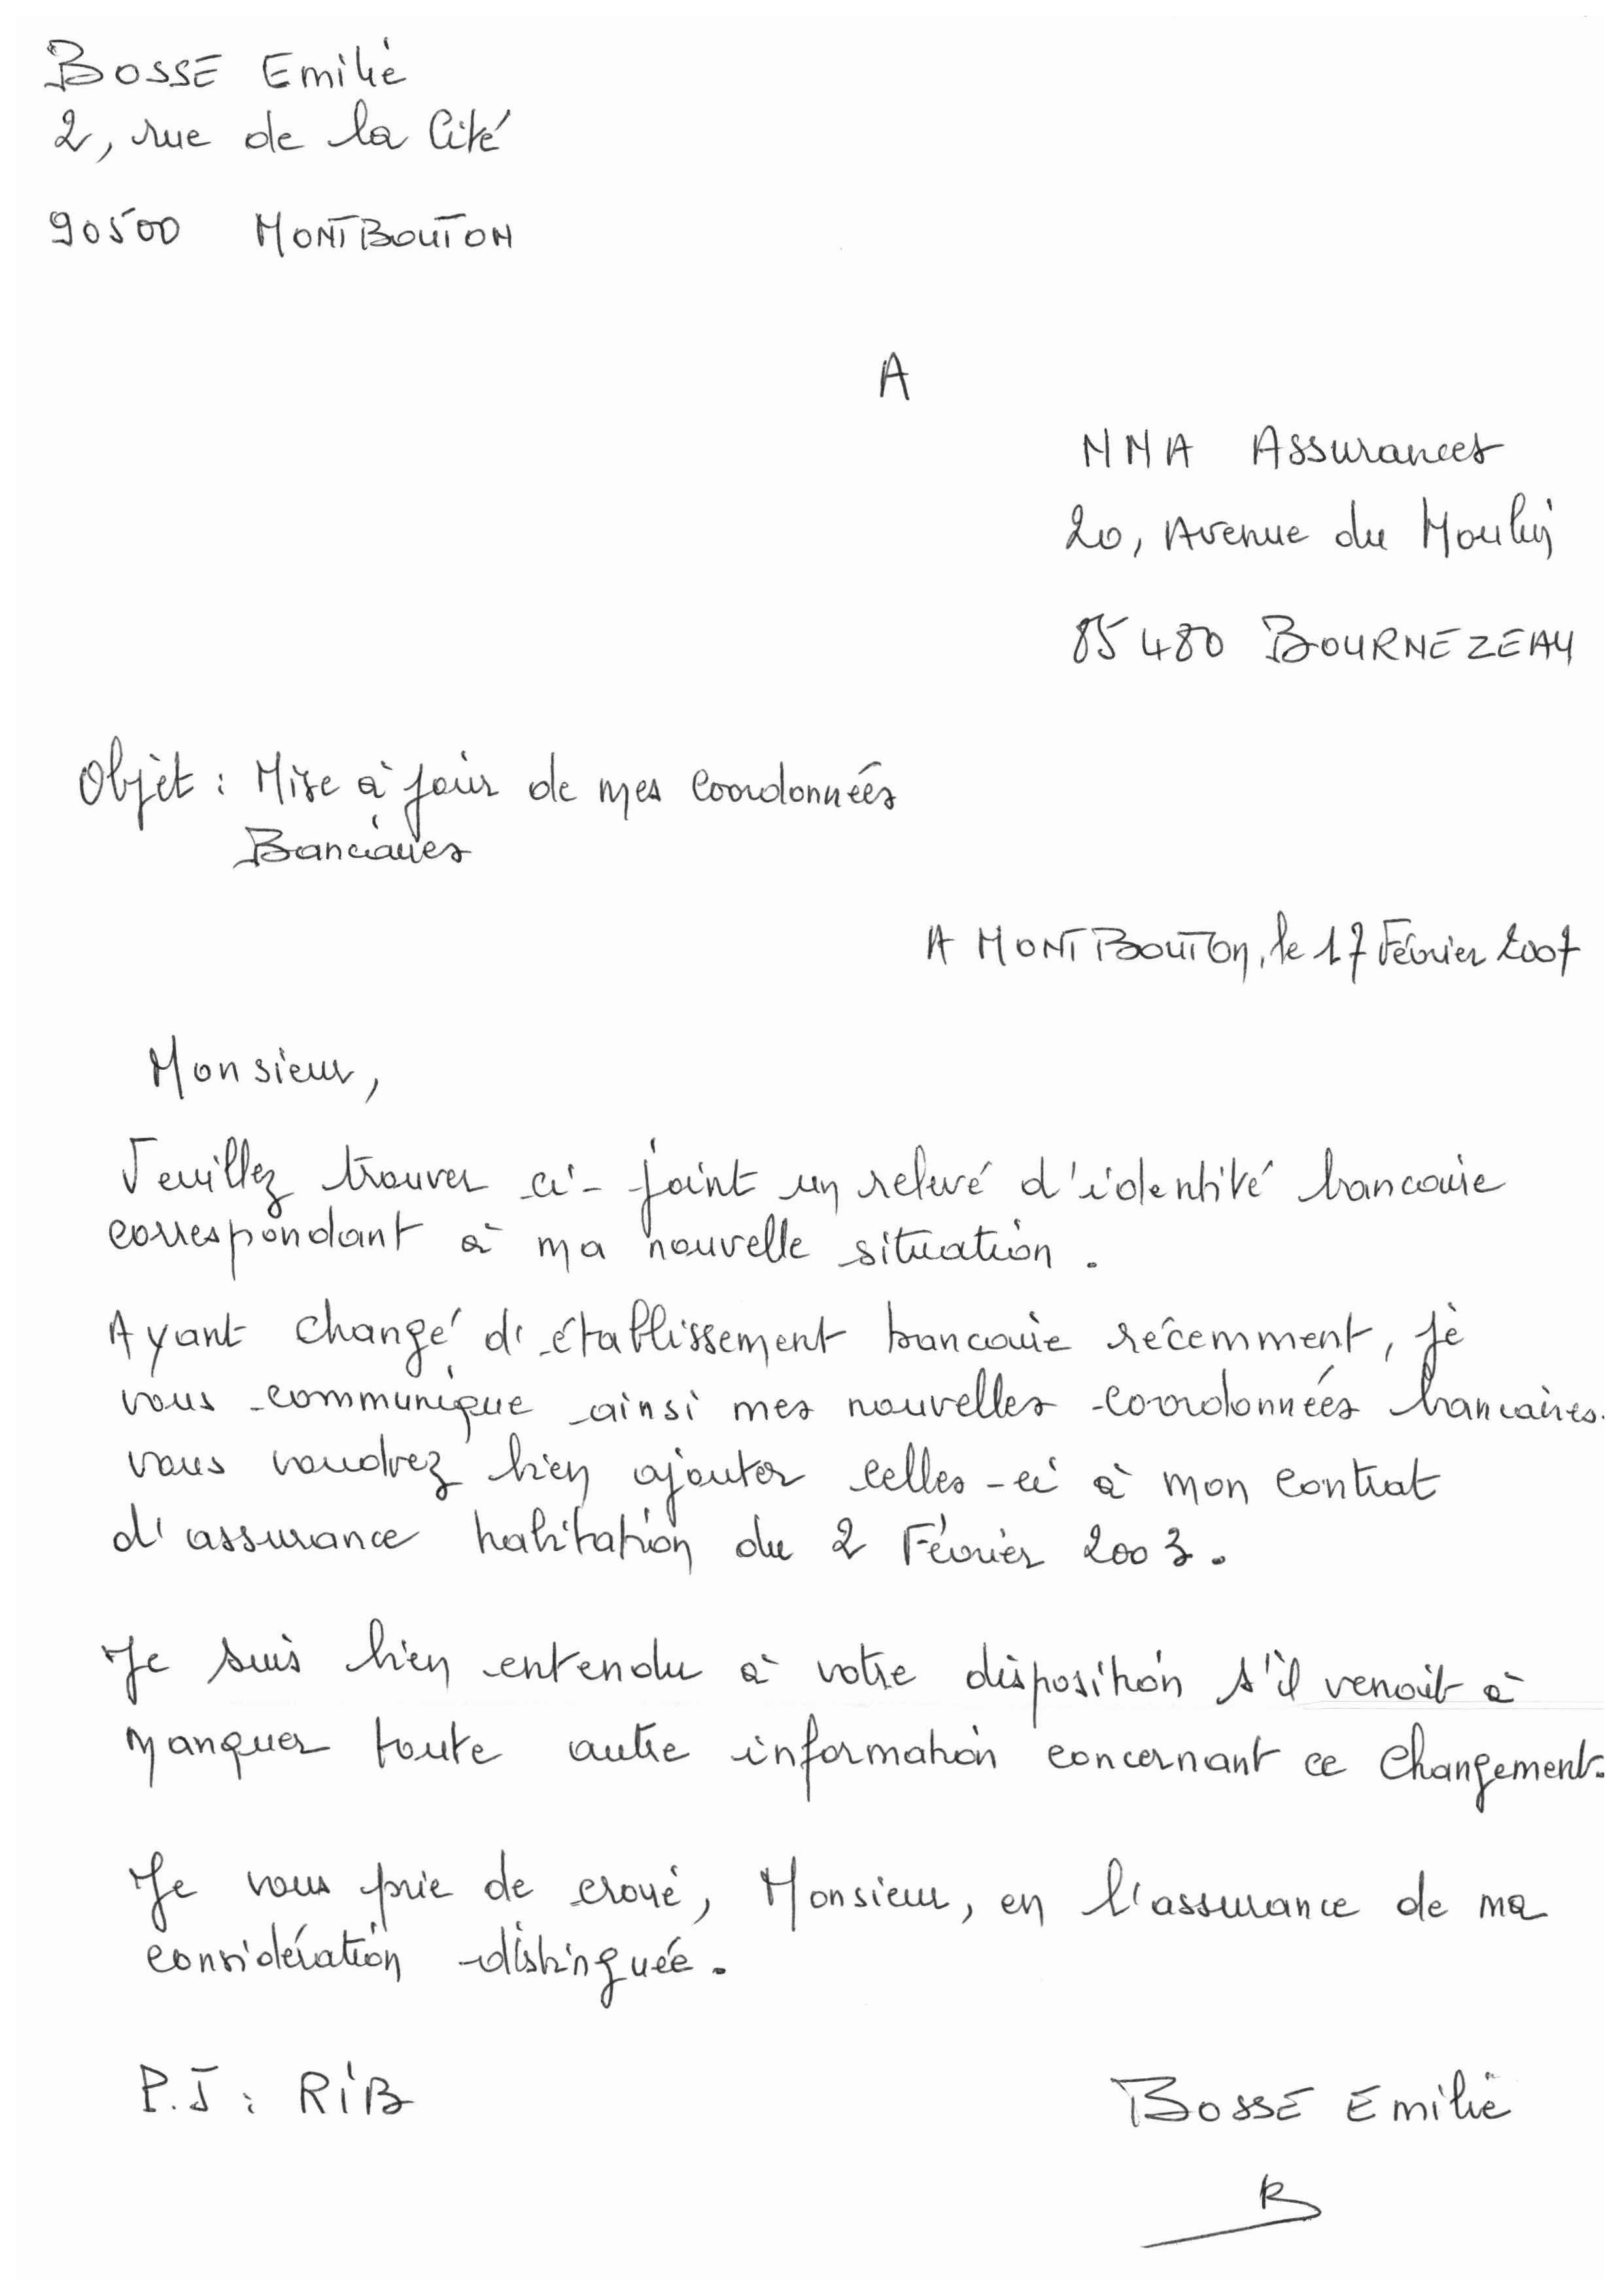 BOSSE Emilie
2, rue de la Cité
90500 MONTBOUTON
A
MMA Assurances
20, Avenue du Moulin
85480 BOURNEZEAU
Objet : Mise à jour de mes coordonnées
Bancaires
A MONTBOUTON, le 17 Février 2007
Monsieur,
Veuillez trouver ci-joint un relevé d'identité bancaire
correspondant à ma nouvelle situation.
Ayant changé d'établissement bancaire récemment, je
vous communique ainsi mes nouvelles coordonnées bancaires.
vous voudrez bien ajouter celles-ci à mon contrat
d'assurance habitation du 2 Février 2003.
Je suis bien entendu à votre disposition s'il venait à
manquer toute autre information concernant ce changement.
Je vous prie de croire, Monsieur, en l'assurance de ma
considération distinguée.
P.J : RIB
BOSSE Emilie
B